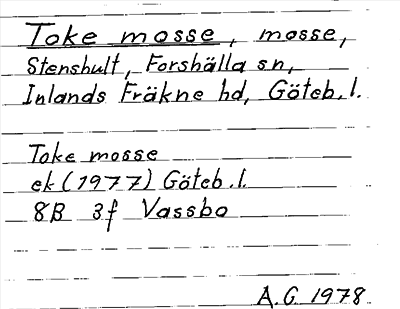 Toke mosse, mosse,
Stenshult, Forshälla sn,
Inlands Fräkne hd, Göteb.l.
Toke mosse
ek (1977) Göteb.l.
8B 3f Vassbo
A.G 1978